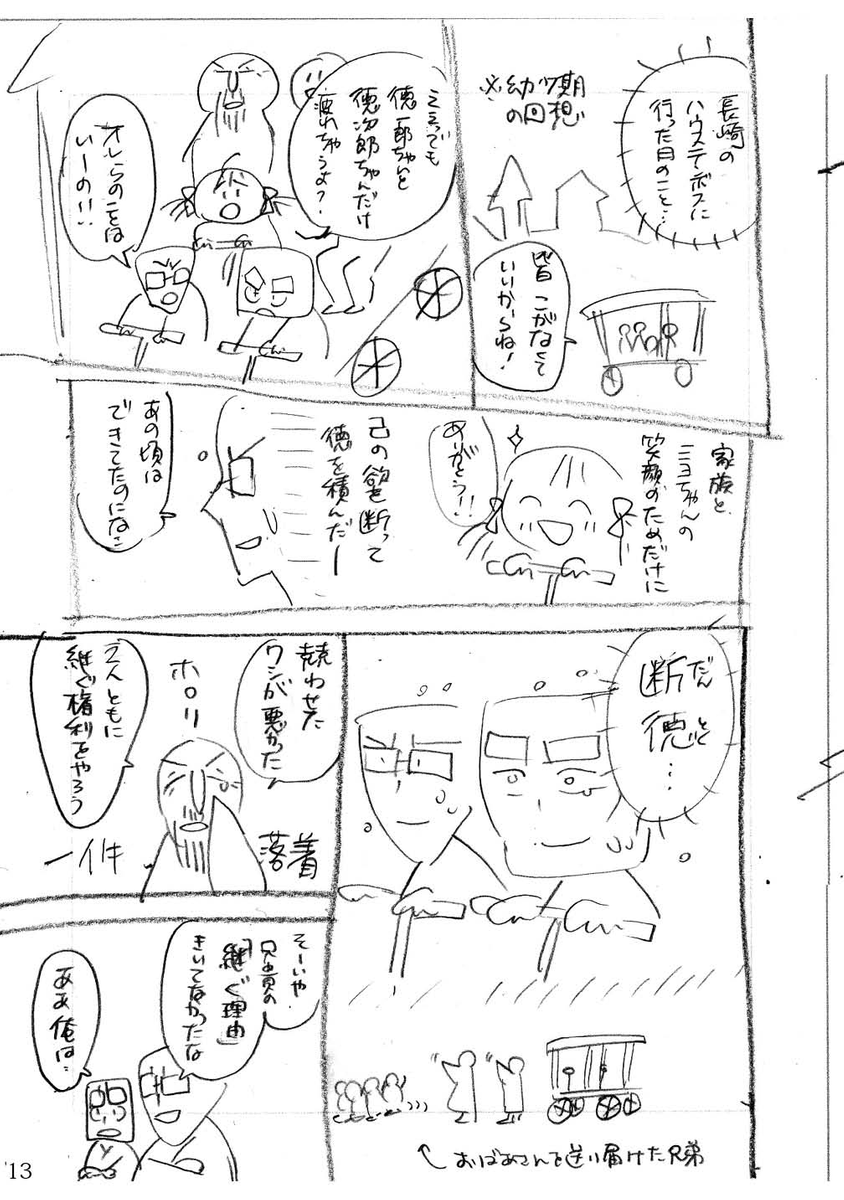 長崎の
ハウステンボスに
行った日のこと…
※幼少期
の回想
皆 こがなくて
いいからね!
でも
徳一郎ちゃんと
徳次郎ちゃんだけ
疲れちゃうよ?
オレらのことは
いーの!!
家族と
ミヨちゃんの
笑顔のためだけに
ありがとう!!
己の欲を断って
徳を積んだー
あの頃は
できてたのにな…
だんとく
断徳…
競わせた
ワシが悪かった
ホロリ
2人ともに
継ぐ権利をやろう
一件
落着
おばあさんを送り届けた兄弟
そーいや
兄貴の
「継ぐ理由」
きいてなかったな
ああ俺は…
13